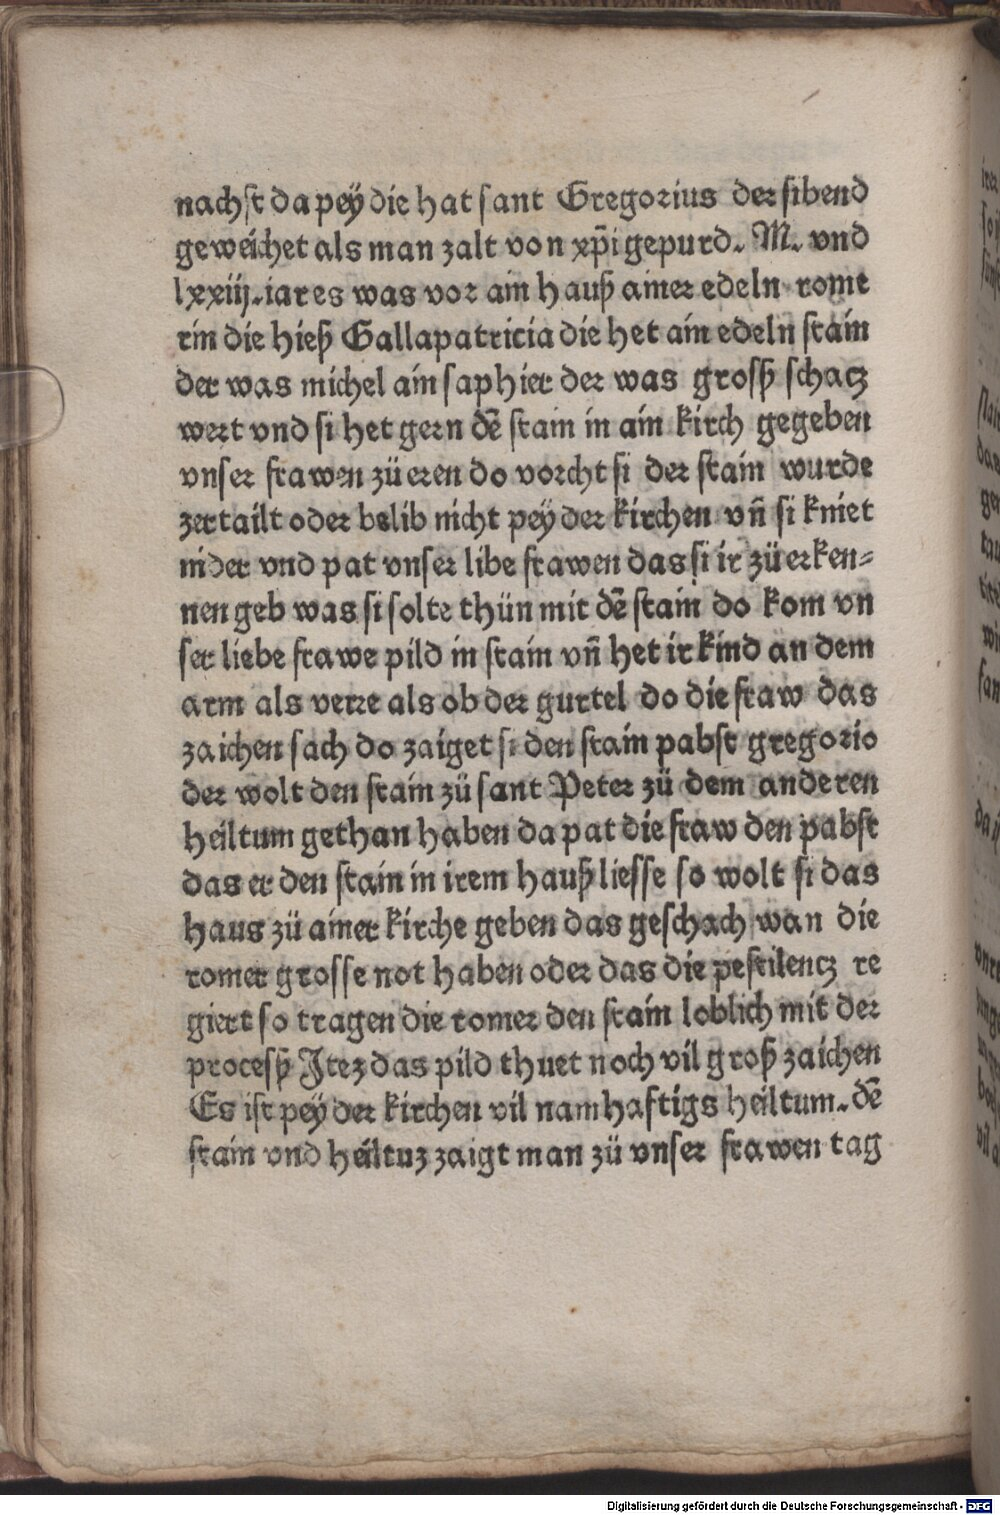 nachst da pey die hat sant Gregorius der sibend
geweichet als man zalt von xp̄i gepurd. M. vnd
lxxiij. iar es was vor ain hauß ainer edeln rome
rin die hieß Gallapatricia die het ain edeln stain
der was michel ain saphier der was grosß schacz
wert vnd si het gern dē stain in ain kirch gegeben
vnser frawen zü eren do vorcht si der stain wurde
zertailt oder belib nicht pey der kirchen vn̄ si kniet
nider vnd pat vnser libe frawen das si ir zü erken⸗
nen geb was si solte thün mit dē stain do kom vn
ser liebe frawe pild in stain vn̄ het ir kind an dem
arm als verre als ob der gurtel do die fraw das
zaichen sach do zaiget si den stain pabst gregorio
der wolt den stain zü sant Peter zü dem anderen
heiltum gethan haben da pat die fraw den pabst
das er den stain in irem hauß liesse so wolt si das
haus zü ainer kirche geben das geschach wan die
romer grosse not haben oder das die pestilencz re
giert so tragen die romer den stain loblich mit der
procesß Itez das pild thuet noch vil groß zaichen
Es ist pey der kirchen vil namhaftigs heiltum. dē
stain vnd heiltuz zaigt man zü vnser frawen tag
Digitalisierung gefördert durch die Deutsche Forschungsgemeinschaft - DFG